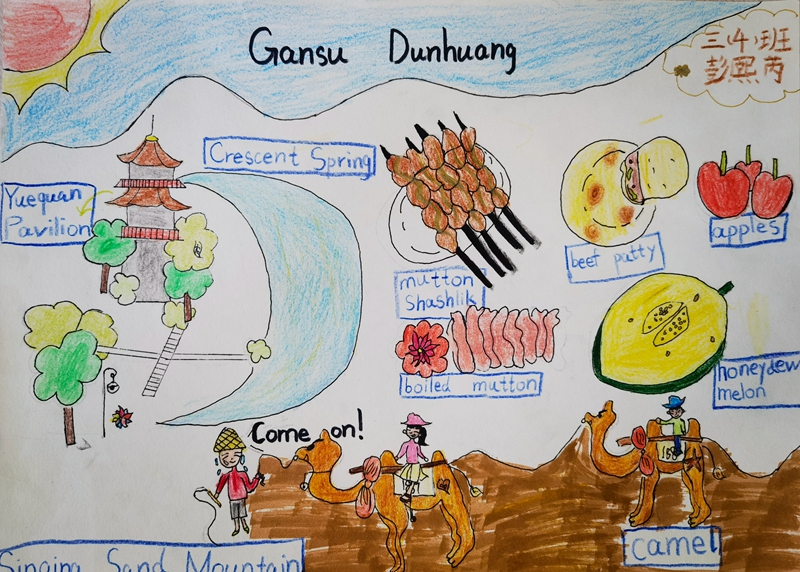 Gansu Dunhuang
三(4)班
彭熙芮
Crescent Spring
Yuequan
Pavilion
mutton
Shashlik
beef patty
apples
boiled mutton
honeydew
melon
Come on!
Singing Sand Mountain
camel